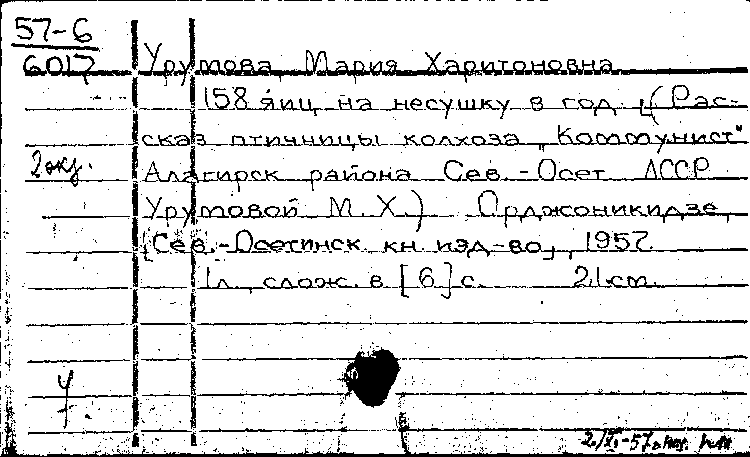 57-6
6017
Урумова Мария Харитоновна
158 яиц на несушку в год. (Рас-
сказ птичницы колхоза „Коммунист"
2 экз.
Алагирск района Сев.-Осет АССР
Урумовой М. Х.) Орджоникидзе,
[Сев.-Осетинск. кн. изд-во], 1957.
1 л., слож. в [6] с. 21 см.
У